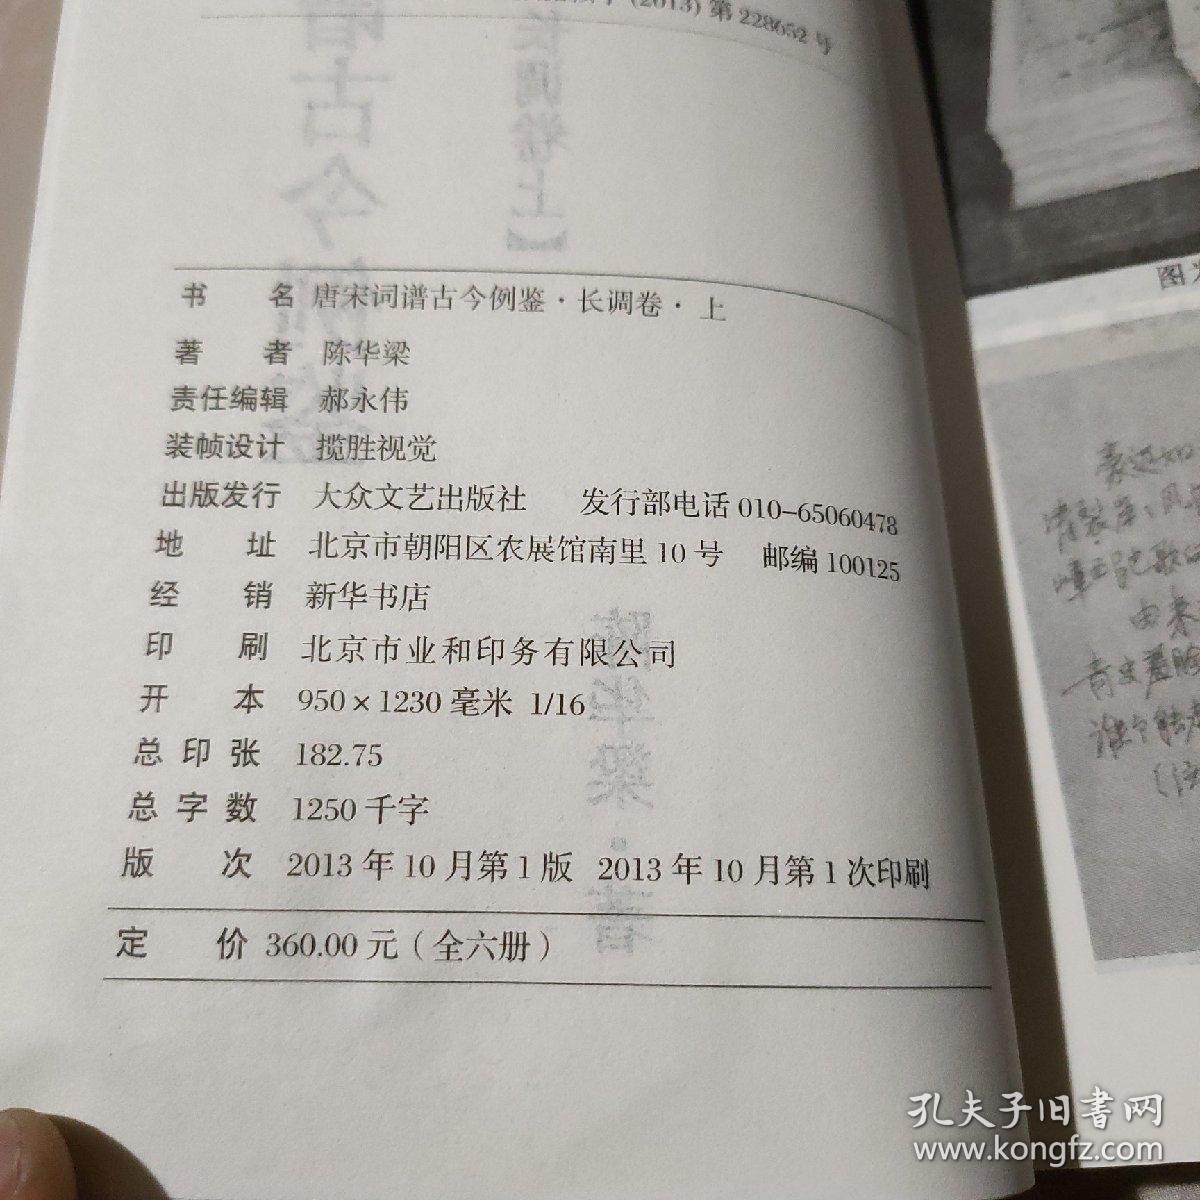 (2013)第228652号
书 名 唐宋词谱古今例鉴·长调卷·上
著 者 陈华梁
责任编辑 郝永伟
装帧设计 揽胜视觉
出版发行 大众文艺出版社 发行部电话 010-65060478
地 址 北京市朝阳区农展馆南里10号 邮编 100125
经 销 新华书店
印 刷 北京市业和印务有限公司
开 本 950×1230毫米 1/16
总 印 张 182.75
总 字 数 1250千字
版 次 2013年10月第1版 2013年10月第1次印刷
定 价 360.00元(全六册)
图
由来
孔夫子旧书网
www.kongfz.com